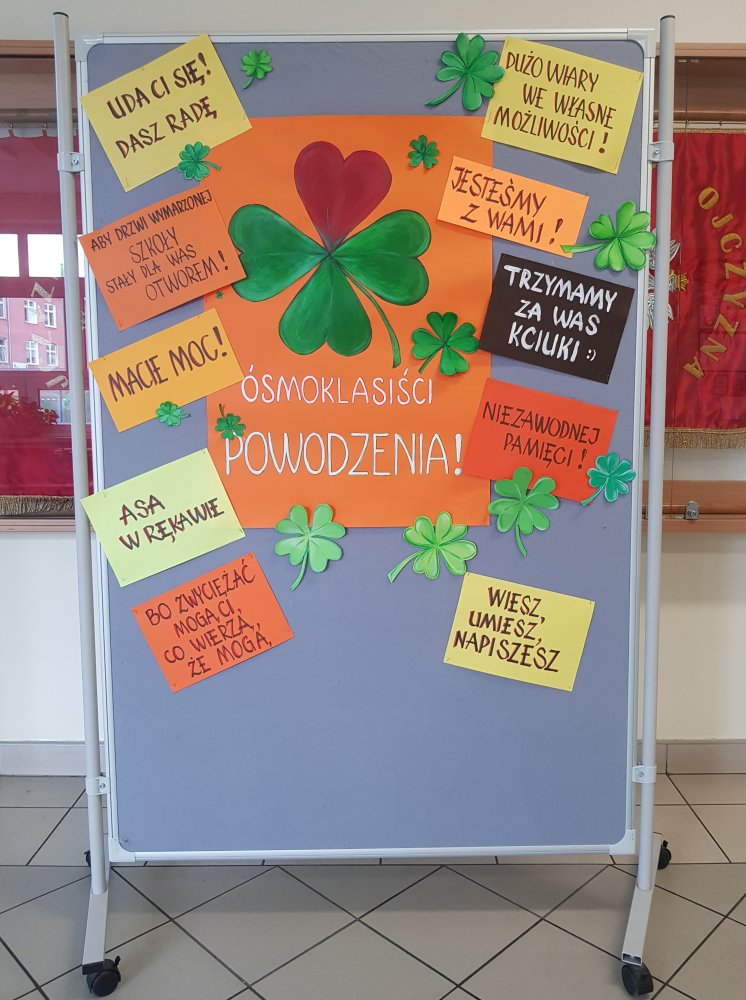 UDA CI SIĘ!
DASZ RADĘ
DUŻO WIARY
WE WŁASNE
MOŻLIWOŚCI!
ABY DRZWI WYMARZONEJ
SZKOŁY
STAŁY DLA WAS
OTWOREM!
JESTEŚMY
Z WAMI!
TRZYMAMY
ZA WAS
KCIUKI :)
MACIE MOC!
ÓSMOKLASIŚCI
POWODZENIA!
NIEZAWODNEJ
PAMIĘCI!
ASA
W RĘKAWIE
BO ZWYCIĘŻAĆ
MOGĄ CI,
CO WIERZĄ,
ŻE MOGĄ,
WIESZ,
UMIESZ,
NAPISZESZ
OJCZYZNA